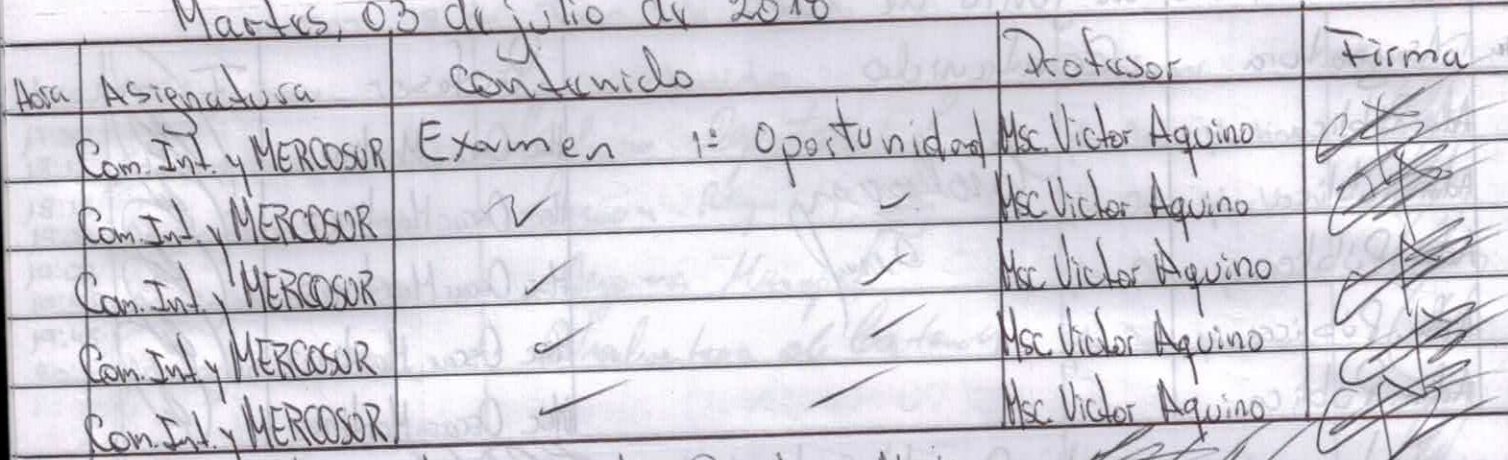 Martes, 03 de julio de 2018
Hora Asignatura Contenido Profesor Firma
Com. Int. y MERCOSUR Examen 1ª Oportunidad Msc. Victor Aquino
Com. Int. y MERCOSUR ✓ ✓ Msc. Victor Aquino
Com. Int. y MERCOSUR ✓ ✓ Msc. Victor Aquino
Com. Int. y MERCOSUR ✓ ✓ Msc. Victor Aquino
Com. Int. y MERCOSUR ✓ ✓ Msc. Victor Aquino